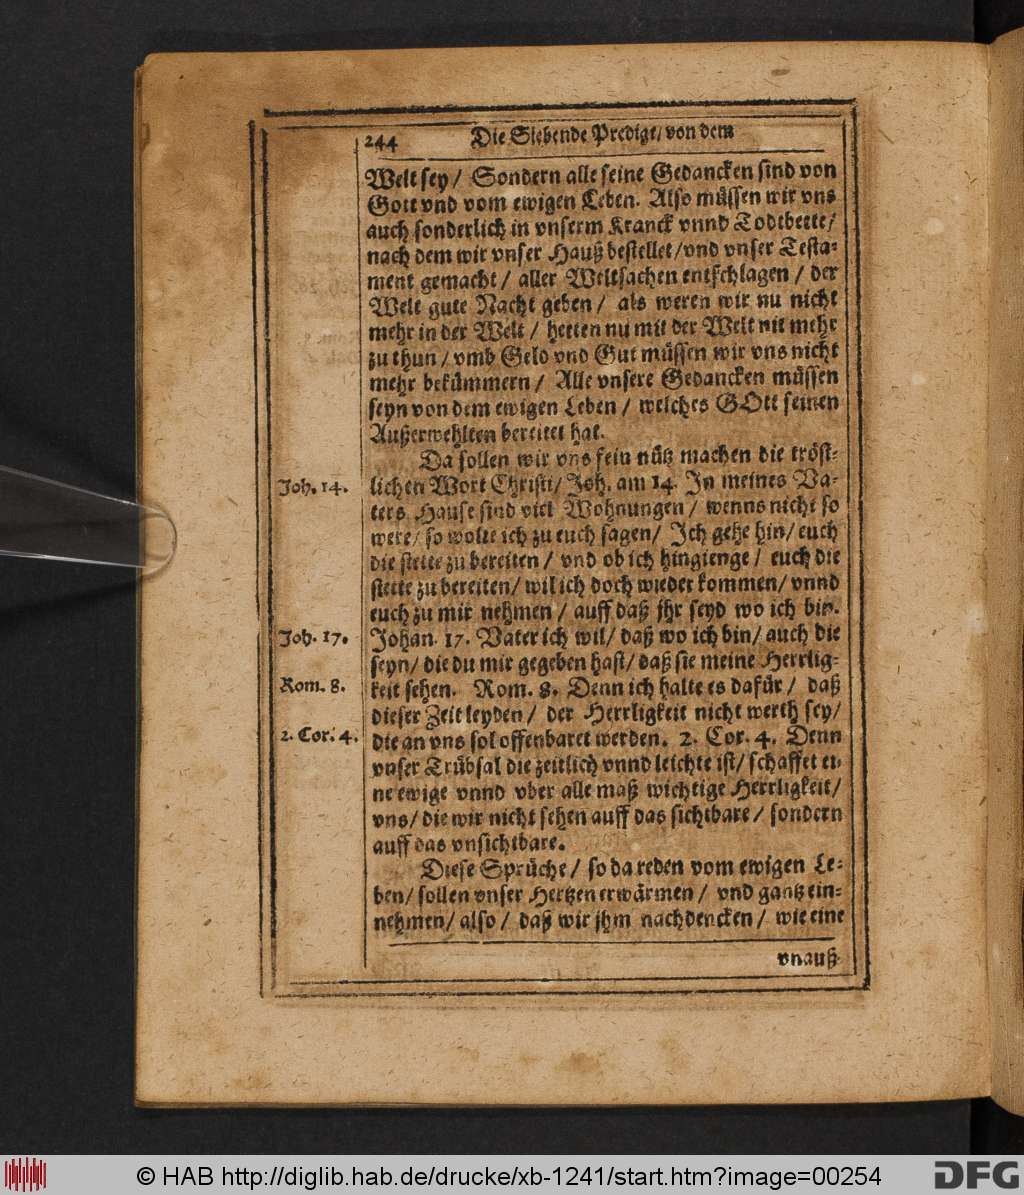 244 Die Siebende Predigt/ von dem
Welt sey/ Sondern alle seine Gedancken sind von
Gott vnd vom ewigen Leben. Also müssen wir vns
auch sonderlich in vnserm Kranck vnnd Todtbette/
nach dem wir vnser Hauß bestellet/ vnd vnser Testa-
ment gemacht/ aller Weltsachen entschlagen/ der
Welt gute Nacht geben/ als weren wir nu nicht
mehr in der Welt/ hetten nu mit der Welt nit mehr
zu thun/ vmb Geld vnd Gut müssen wir vns nicht
mehr bekümmern/ Alle vnsere Gedancken müssen
seyn von dem ewigen Leben/ welches GOtt seinen
Außerwehlten bereitet hat.
Da sollen wir vns fein nütz machen die tröst-
Joh. 14.
lichen Wort Christi/ Joh. am 14. In meines Va-
ters Hause sind viel Wohnungen/ wenns nicht so
were/ so wolte ich zu euch sagen/ Ich gehe hin/ euch
die stette zu bereiten/ vnd ob ich hingienge/ euch die
stette zu bereiten/ wil ich doch wieder kommen/ vnnd
euch zu mir nehmen/ auff daß jhr seyd wo ich bin.
Joh. 17.
Johan. 17. Vater ich wil/ daß wo ich bin/ auch die
seyn/ die du mir gegeben hast/ daß sie meine Herrlig-
Rom. 8.
keit sehen. Rom. 8. Denn ich halte es dafür/ daß
dieser Zeit leyden/ der Herrligkeit nicht werth sey/
2. Cor. 4.
die an vns sol offenbaret werden. 2. Cor. 4. Denn
vnser Trübsal die zeitlich vnnd leichte ist/ schaffet ei-
ne ewige vnnd vber alle maß wichtige Herrligkeit/
vns/ die wir nicht sehen auff das sichtbare/ sondern
auff das vnsichtbare.
Diese Sprüche/ so da reden vom ewigen Le-
ben/ sollen vnser Hertzen erwärmen/ vnd gantz ein-
nehmen/ also/ daß wir jhm nachdencken/ wie eine
vnauß-
© HAB http://diglib.hab.de/drucke/xb-1241/start.htm?image=00254
DFG